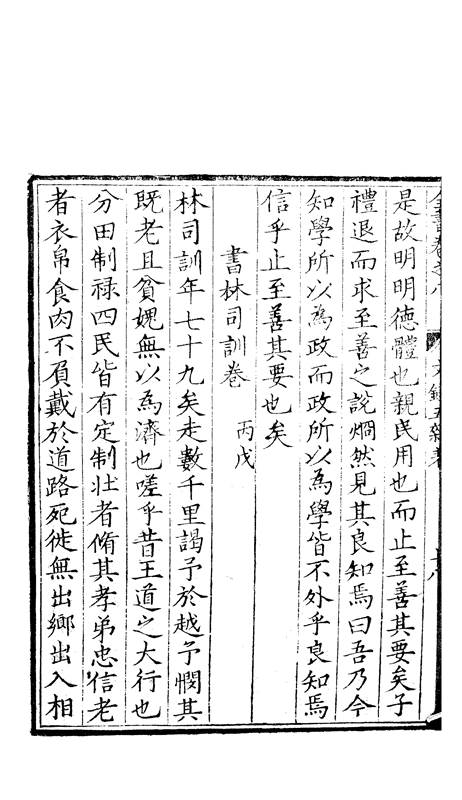 全書卷之八　文錄五雜著
是故明明德體也親民用也而止至善其要矣子
禮退而求至善之說烱然見其良知焉曰吾乃今
知學所以為政而政所以為學皆不外乎良知焉
信乎止至善其要也矣
書林司訓卷　丙戌
林司訓年七十九矣走數千里謁予於越予憫其
既老且貧媿無以為濟也嗟乎昔王道之大行也
分田制祿四民皆有定制壯者脩其孝弟忠信老
者衣帛食肉不負戴於道路死徙無出鄉出入相